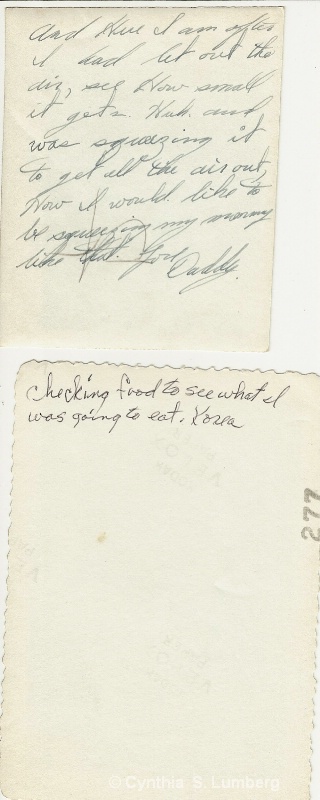 And Here I am after
I had let out the
air, see How small
it gets. Huh. and
was squeazing it
to get all the air out,
How I would like to
be squeezing my mommy
like that. Your
Daddy.
checking food to see what I
was going to eat. Korea
277
© Cynthia S. Lumberg